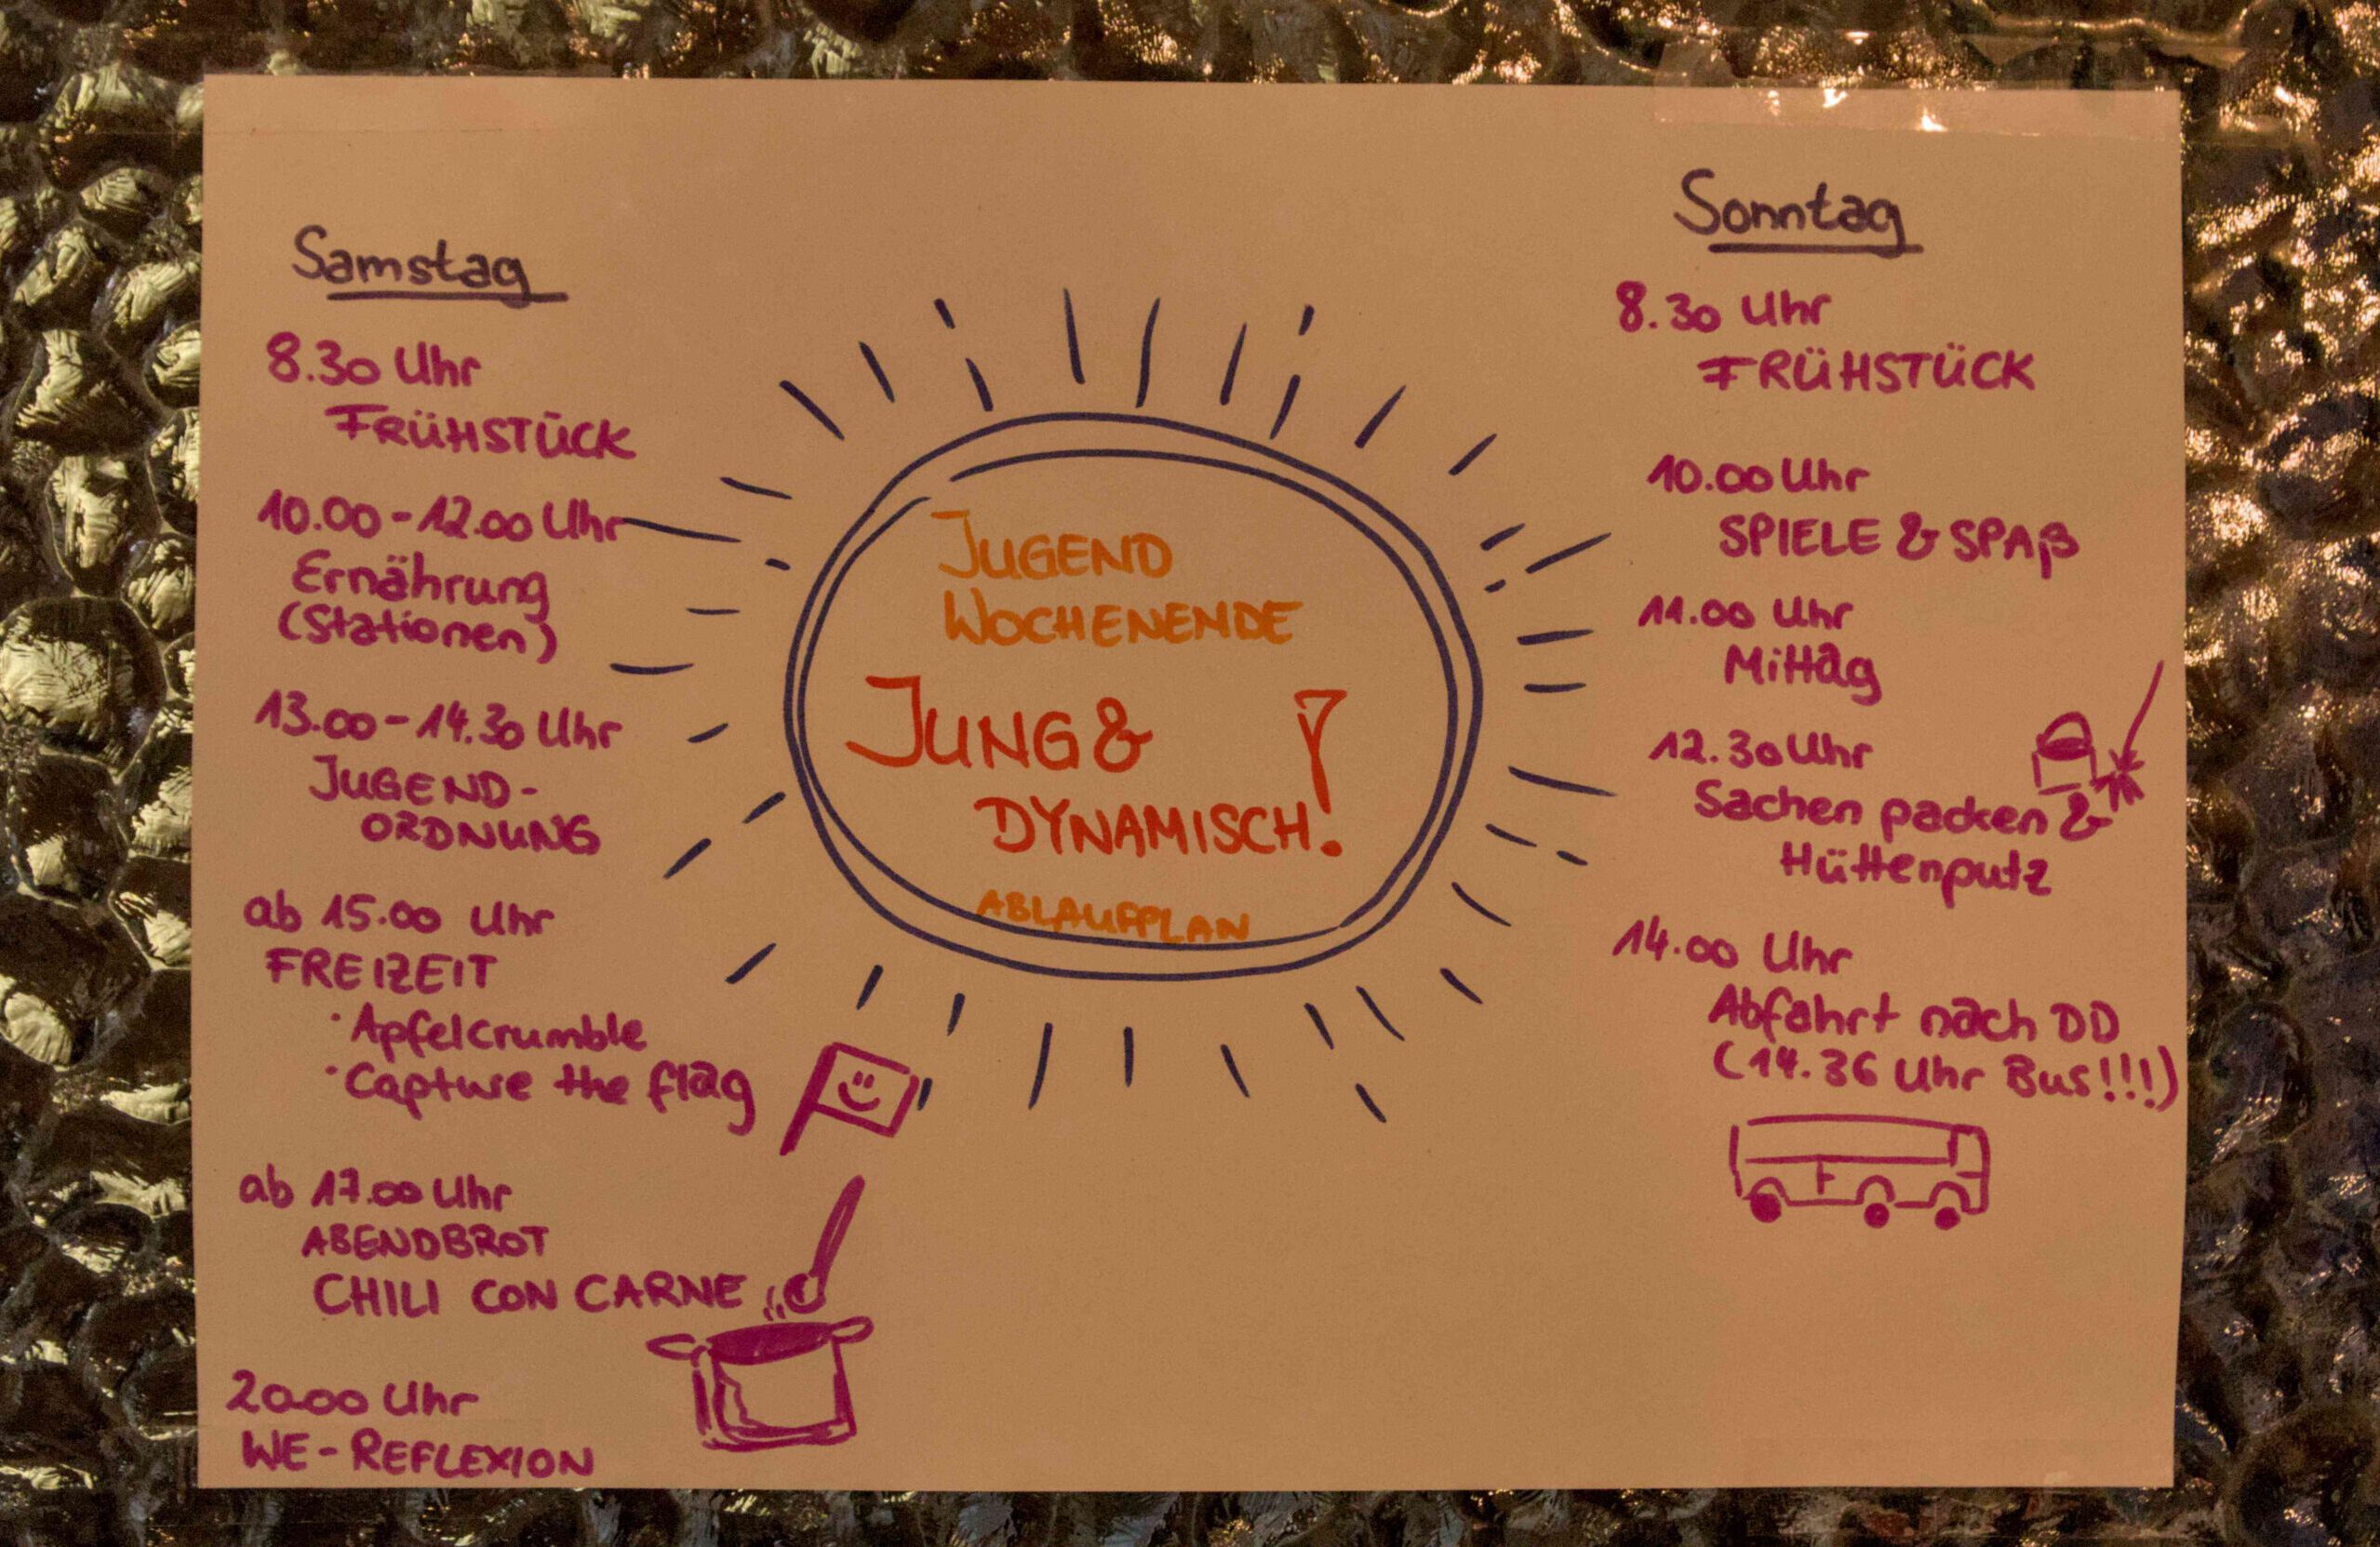 Samstag
8.30 Uhr
FRÜHSTÜCK
10.00-12.00 Uhr
Ernährung
(Stationen)
13.00-14.30 Uhr
JUGEND-
ORDNUNG
ab 15.00 Uhr
FREIZEIT
· Apfelcrumble
· Capture the flag
ab 17.00 Uhr
ABENDBROT
CHILI CON CARNE
20.00 Uhr
WE-REFLEXION
JUGEND
WOCHENENDE
JUNG &
DYNAMISCH!
ABLAUFPLAN
Sonntag
8.30 Uhr
FRÜHSTÜCK
10.00 Uhr
SPIELE & SPAß
11.00 Uhr
Mittag
12.30 Uhr
Sachen packen &
Hüttenputz
14.00 Uhr
Abfahrt nach DD
(14.36 Uhr Bus!!!)